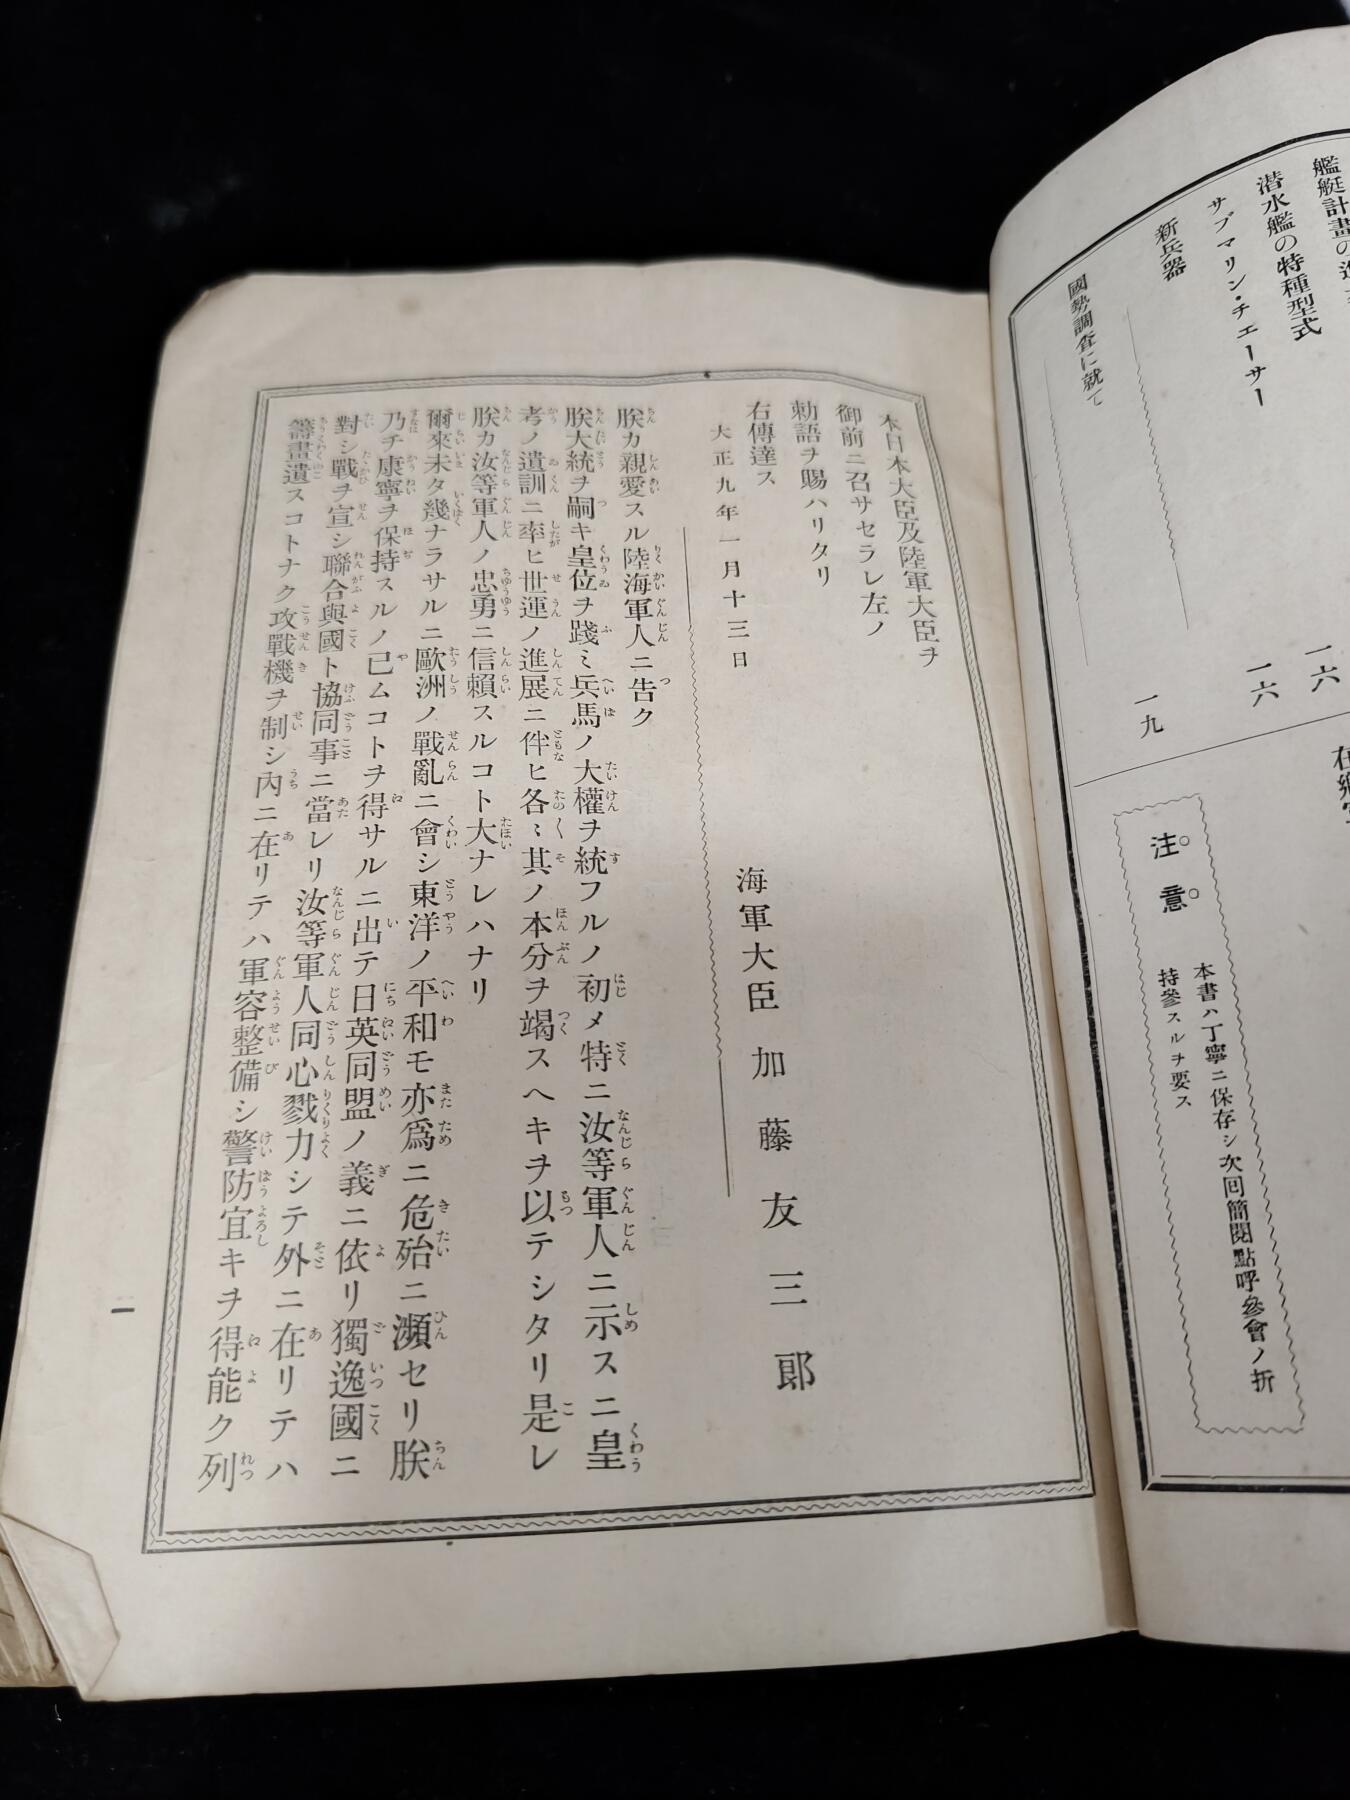 潜水艦の特種型式
一六
サブマリン・チエーサー
一六
新兵器
國勢調査に就て
一九
注意
本書ハ丁寧ニ保存シ次回簡閲點呼參會ノ折
持參スルヲ要ス
本日本大臣及陸軍大臣ヲ
御前ニ召サセラレ左ノ
勅語ヲ賜ハリタリ
右傳達ス
大正九年一月十三日
海軍大臣 加藤友三郎
朕カ親愛スル陸海軍人ニ告ク
朕大統ヲ嗣キ皇位ヲ踐ミ兵馬ノ大權ヲ統フルノ初メ特ニ汝等軍人ニ示スニ皇
考ノ遺訓ニ率ヒ世運ノ進展ニ伴ヒ各〻其ノ本分ヲ竭スヘキヲ以テシタリ是レ
朕カ汝等軍人ノ忠勇ニ信賴スルコト大ナレハナリ
爾來未タ幾ナラサルニ歐洲ノ戰亂ニ會シ東洋ノ平和モ亦爲ニ危殆ニ瀕セリ朕
乃チ康寧ヲ保持スルノ已ムコトヲ得サルニ出テ日英同盟ノ義ニ依リ獨逸國ニ
對シ戰ヲ宣シ聯合與國ト協同事ニ當レリ汝等軍人同心戮力シテ外ニ在リテハ
籌畫遺スコトナク攻戰機ヲ制シ內ニ在リテハ軍容整備シ警防宜キヲ得能ク列
一